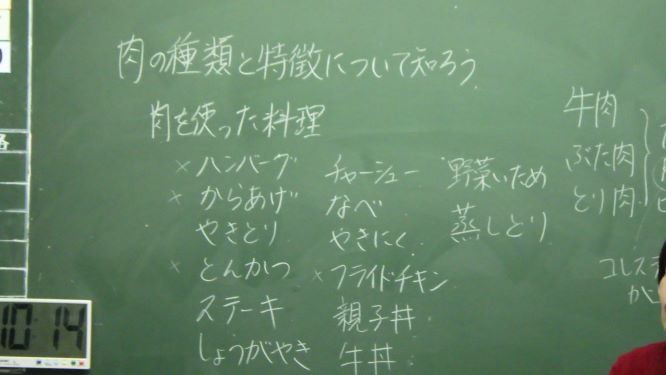 肉の種類と特徴について知ろう
肉を使った料理
×ハンバーグ チャーシュー 野菜いため
×からあげ なべ 蒸しとり
やきとり やきにく
×とんかつ ×フライドチキン
ステーキ 親子丼
しょうがやき 牛丼
牛肉
ぶた肉
とり肉
コレステ
が
10 14